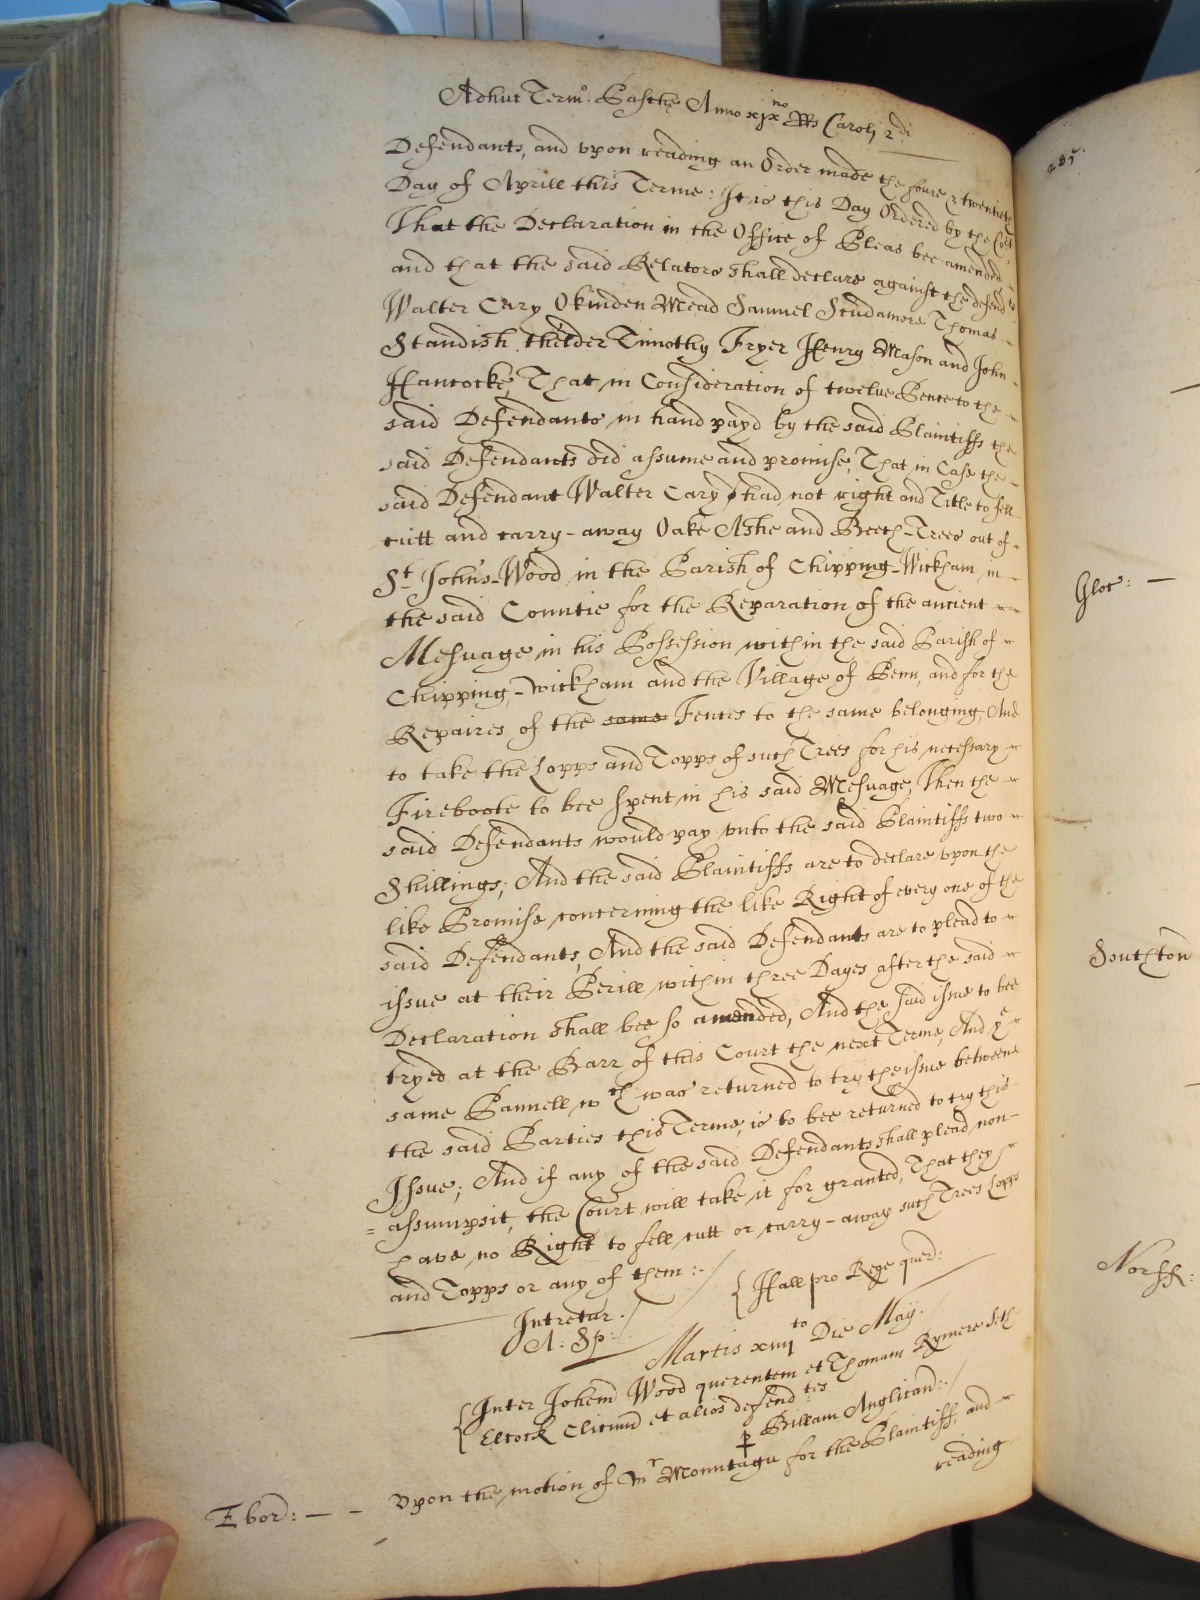 Adhuc Term: Pasche Anno xix no RRs Caroli 2 di
Defendants, and vpon reading an Order made the foure & twentieth
Day of Aprill this Terme: It is this Day Ordered by the Cort
That the Declaration in the Office of Pleas bee amended
and that the said Relators shall declare against the defend ts
Walter Cary Okinden Mead Samuel Scudamore Thomas
Standish thelder Timothy Fryer Henry Mason and John
Hancocke, That in Consideration of twelve Pence to the
said Defendants in hand payd by the said Plaintiffs the
said Defendants did assume and promise, That in Case the
said Defendant Walter Cary had not right and Title to fell
cutt and carry-away Oake Ashe and Beech-Trees out of
St Johns-Wood in the Parish of Chipping-Wickham in
the said Countie for the Reparation of the ancient
Messuage in his Possession within the said Parish of
Chipping-wickham and the Village of Penn, and for the
Repaires of the same Fences to the same belonging, And
to take the Lopps and Topps of such Trees for his necessary
Fireboote to bee spent in his said Messuage, Then the
said Defendants would pay vnto the said Plaintiffs two
Shillings; And the said Plaintiffs are to declare vpon the
like Promise concerning the like Right of every one of the
said Defendants, And the said Defendants are to plead to
issue at their Perill within three Dayes after the said
Declaration shall bee so amended, And the said issue to bee
tryed at the Barr of this Court the next Terme, And ye
same Pannell wch was returned to try the issue betweene
the said Parties this Terme, is to bee returned to try this
Issue; And if any of the said Defendants shall plead non
=assumpsit, the Court will take it for granted, That they
have no Right to fell cutt or carry-away such Trees Lopps
and Topps or any of them:-
Intretur.
A: Sp:
Hall pro Rege quer:
Martis xiiij to Die Maij.
Inter Johem Wood querentem et Thomam Rymere Seth
Elcock Clicum et alios defend tes
P Billam Anglican:
Ebor: — - Vpon the motion of Mr Mountagu for the Plaintiff, and
reading
285.
Gloc: —
Southton
Norff: